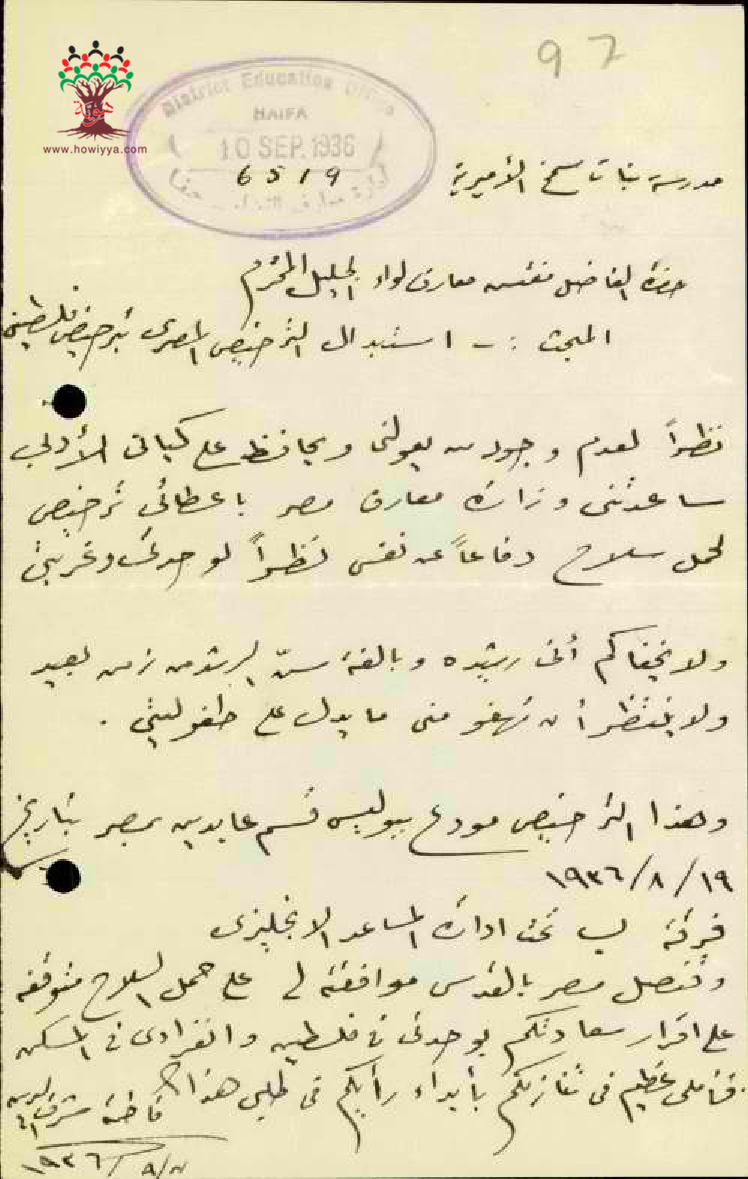 97
هوية
www.howiyya.com
District Education Office
HAIFA
10 SEP. 1936
6519
مدرسة بنات سمخ الأميرية
حضرة الفاضل مفتش معارف لواء الجليل المحترم
المبحث :- استبدال الترخيص المصري بترخيص فلسطيني
نظراً لعدم وجود من يعولني ويحافظ على كياني الأدبي
ساعدتني وزارة معارف مصر باعطائي ترخيص
لحمل سلاح دفاعاً عن نفسي نظراً لوحدتي وغربتي
ولا يخفاكم أنني رشيده وبالغة سن الرشد من زمن بعيد
ولا ينتظر أن تهفو مني ما يدل على طفوليتي .
وهذا الترخيص مودع ببوليس قسم عابدين بمصر بتاريخ
١٩/٨/١٩٣٦
فرقة ب تحت ادارة المساعد الانجليزى
وقنصل مصر بالقدس موافقته لي على حمل السلاح متوقفه
على اقرار سعادتكم بوحدتي في فلسطين وانفرادى في المسكن
فأملي عظيم في تنازلكم بأبداء رأيكم في طلبي هذا
فاطمة شرف الدين
٧/٩/١٩٣٦